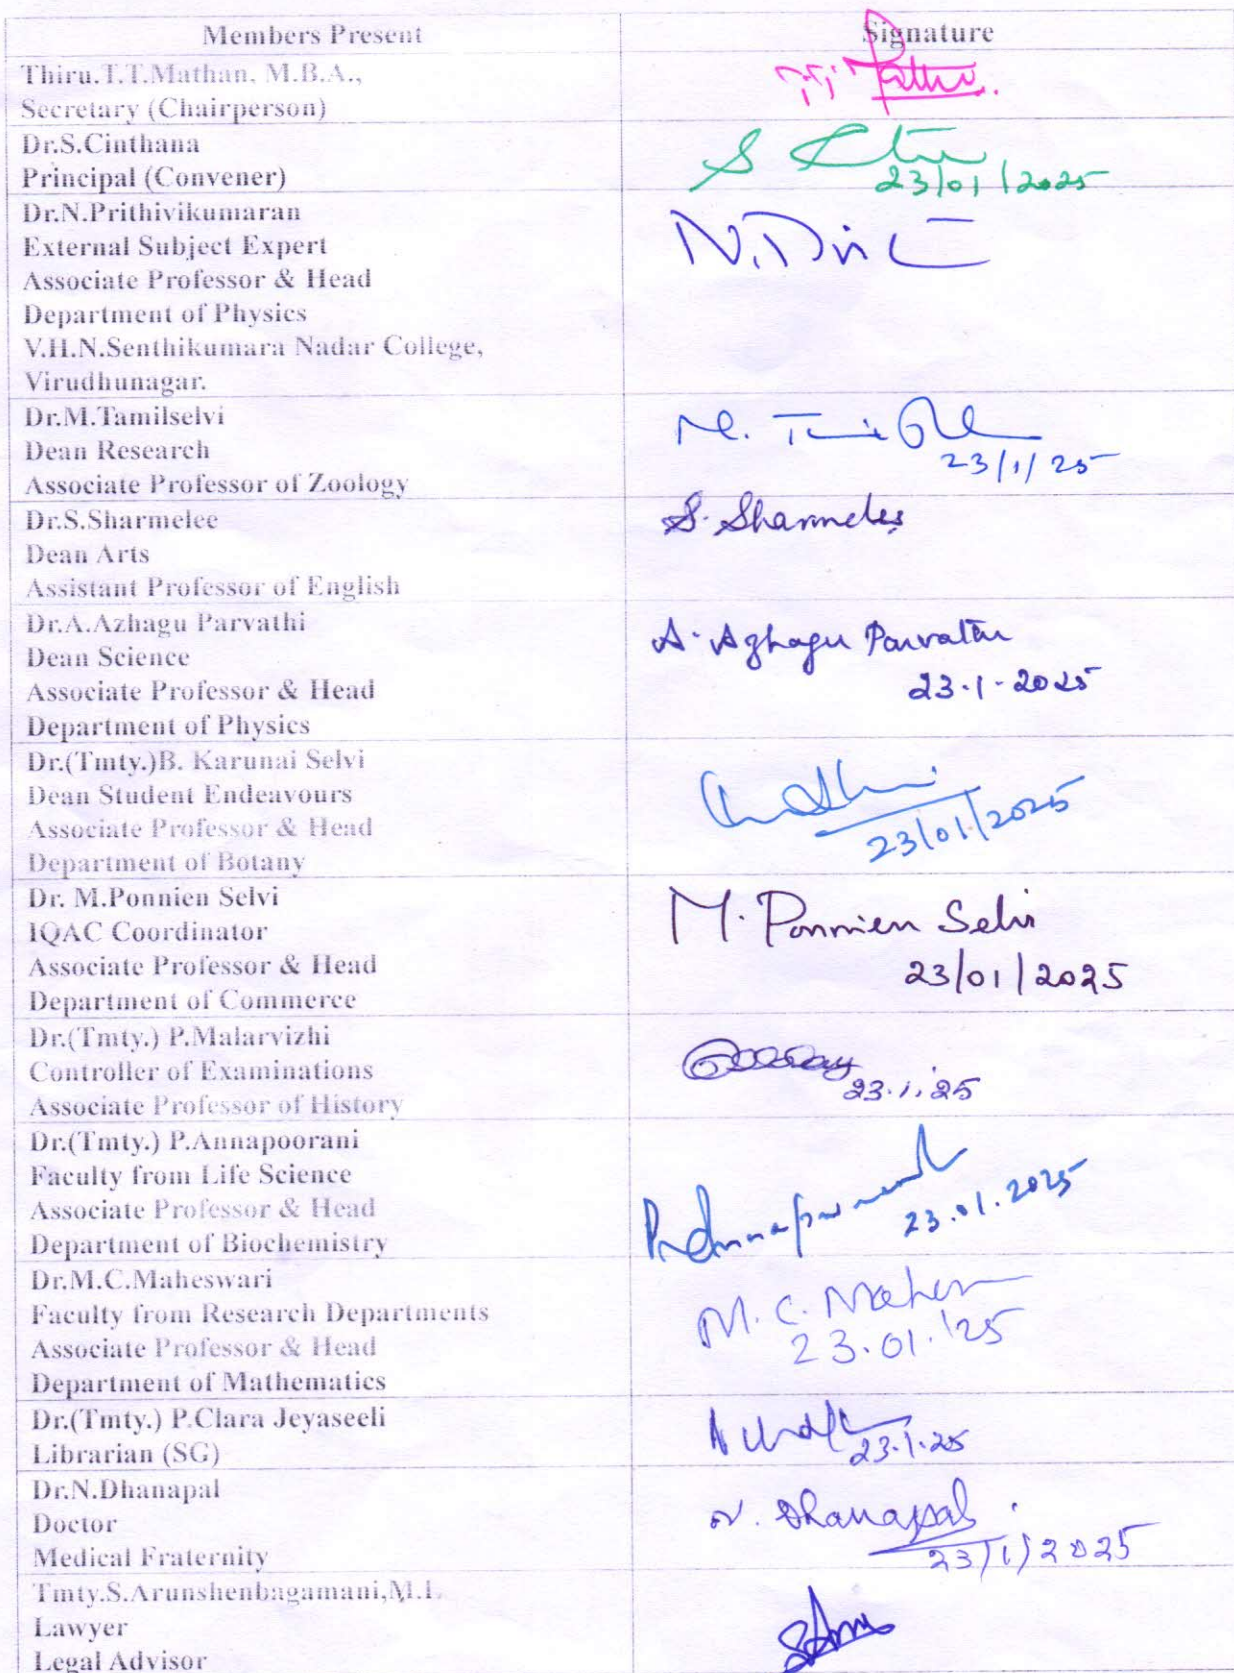 Members Present Signature
Thiru.T.T.Mathan, M.B.A.,
Secretary (Chairperson)
Dr.S.Cinthana
Principal (Convener)
23/01/2025
Dr.N.Prithivikumaran
External Subject Expert
Associate Professor & Head
Department of Physics
V.H.N.Senthikumara Nadar College,
Virudhunagar.
Dr.M.Tamilselvi
Dean Research
23/1/25
Associate Professor of Zoology
Dr.S.Sharmelee S. Sharmelee
Dean Arts
Assistant Professor of English
Dr.A.Azhagu Parvathi A. Azhagu Parvathi
Dean Science
23.1.2025
Associate Professor & Head
Department of Physics
Dr.(Tmty.)B. Karunai Selvi
Dean Student Endeavours
Associate Professor & Head
23/01/2025
Department of Botany
Dr. M.Ponnien Selvi M. Ponnien Selvi
IQAC Coordinator
Associate Professor & Head 23/01/2025
Department of Commerce
Dr.(Tmty.) P.Malarvizhi
Controller of Examinations
23.1.25
Associate Professor of History
Dr.(Tmty.) P.Annapoorani
Faculty from Life Science
Associate Professor & Head 23.01.2025
Department of Biochemistry
Dr.M.C.Maheswari
Faculty from Research Departments M. C.
Associate Professor & Head 23.01.'25
Department of Mathematics
Dr.(Tmty.) P.Clara Jeyaseeli
Librarian (SG) 23.1.25
Dr.N.Dhanapal
Doctor N. Dhanapal
Medical Fraternity 23/1/2025
Tmty.S.Arunshenbagamani,M.L.
Lawyer
Legal Advisor